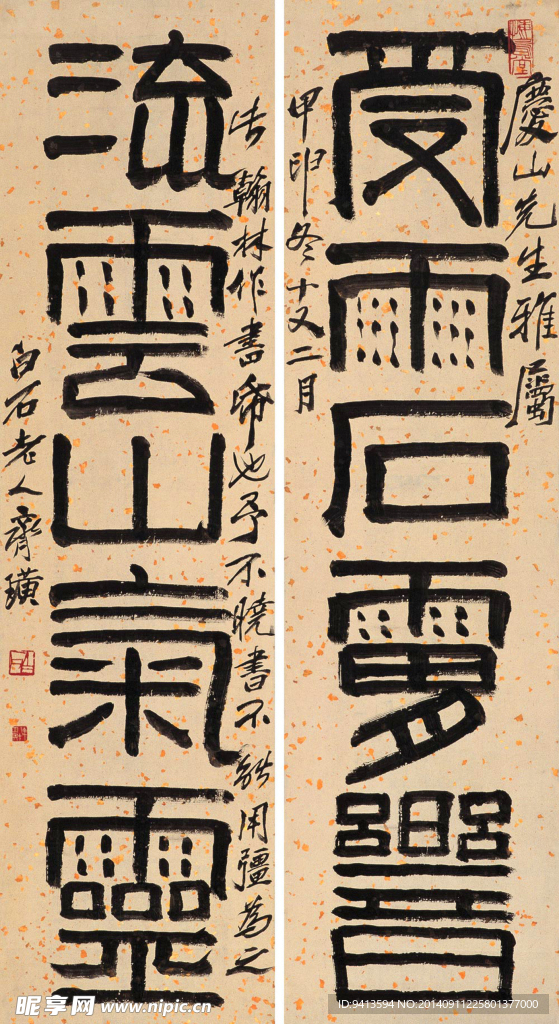 慶山先生雅屬
受雨石
甲申冬十又二月
翰林作書 也予不曉書不能用彊為之
流雲山氣靈
白石老人齊璜
昵享网 www.nipic.cn
ID:9413594 NO:20140911225801377000